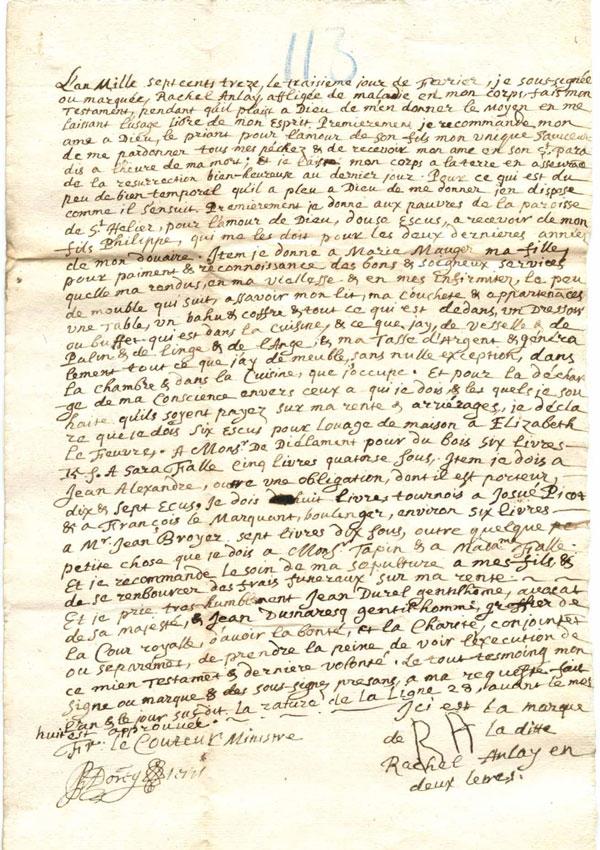 113
L'an Mille septcents treze, le traisieme jour de Fevrier, je sous-signée
ou marquée, Rachel Anlay, affligée de maladie en mon corps, fais mon
Testament, pendant qu'il plaist a Dieu de m'en donner le Moyen en me
laissant l'usage libre de mon Esprit. Premierement je recommande mon
ame a Dieu, le priant pour l'amour de son fils mon unique Sauveur
de me pardonner tous mes péchez & de recevoir mon ame en son St. para
dis a l'heure de ma mort: Et je laisse mon corps a la terre en asseurance
de la resurrection bien-heureuse au dernier jour. Pour ce qui est du
peu de bien temporel qu'il a pleu a Dieu de me donner j'en dispose
comme il s'ensuit. Premièrement je donne aux pauvres de la paroisse
de St Helier, pour l'amour de Dieu, douse Escus, a recevoir de mon
fils Philippe, qui me les doit pour les deux dernieres années
de mon douaire. Item je donne a Marie Mauger ma fille,
pour paiment & reconnoissance des bons & soigneux services
qu'elle ma rendus, en ma viellesse & en mes Infirmitez, le peu
de mouble qui suit, assavoir mon lit, ma couchete & appartenaces
vne Table, vn bahu & coffre & tout ce qui est dedans, vn Dressoir
ou buffet qui est dans la cuisine, & ce que j'ay, de vesselle & de
Palin & de linge & de l'Ange, & ma Tasse d'Argent & généra
lement tout ce que j'ay de meuble, sans nulle exception, dans
la chambre & dans la Cuisine, que j'occupe. Et pour la déchar
ge de ma Conscience envers ceux a qui je dois & les quels je sou
haite qu'ils soyent payez sur ma rente & arriérages, je décla
re que je dois six Escus pour louage de maison a Elizabeth
le Feuvre. A Monsr. De Diélament pour du bois six livres
15 s. A Sara Falle cinq livres quatorse sous. Item je dois a
Jean Alexandre, outre une obligation, dont il est porteur,
dix & sept Ecus. Je dois huit livres tournois a Josué Picot
& a François le Marquant, boulanger, environ six livres
a Mr. Jean Broyer sept livres dix sous, outre quelque
petite chose que je dois a Monsr Tapin & a Madame Falle.
Et je recommande le soin de ma sepulture a mes fils, &
de se renbourcer des frais funeraux sur ma rente.
Et je prie tras humblement Jean Durel gentilhôme, avocat
de sa majesté, & Jean Dumaresq gentilhomme, greffier de
la Cour royalle, d'avoir la bonté, et la Charité, conjointet
ou separémet, de prendre la peine de voir l'execution de
ce mien Testamet & derniere volonté. Le tout tesmoing mon
signe ou marque & des sous-signés presans, a ma requeste fait
l'an & le jour sus dit. La rature de la Ligne 28, avant le mot
huit est approuvée.
Ici est la marque
de RA la ditte
Rachel Anlay en
deux letres.
Fr. le Couteur Ministre